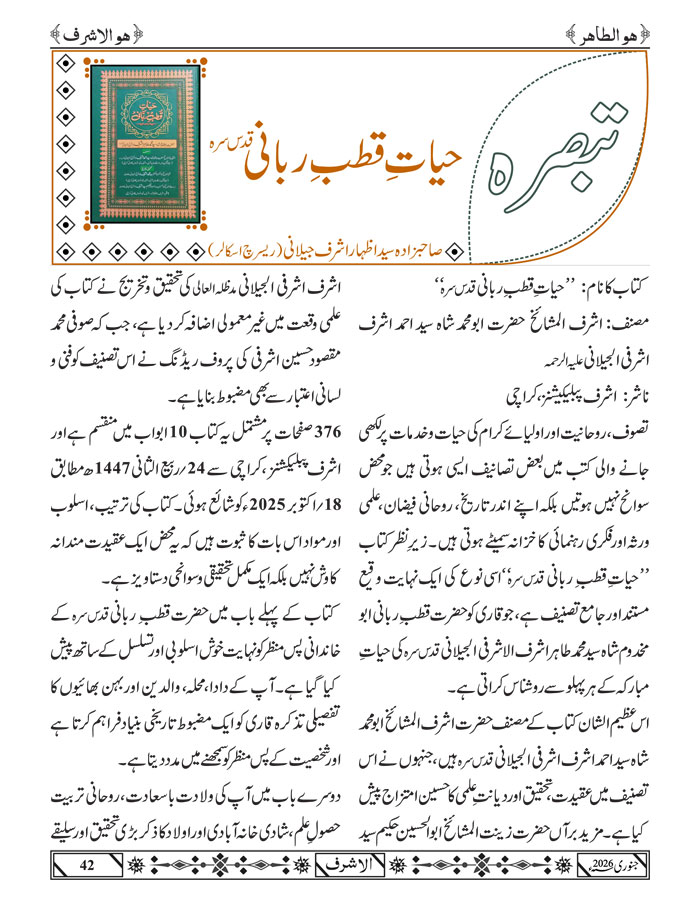 ﴿ھو الطاہر﴾
﴿ھو الاشرف﴾
تبصرہ
حیاتِ قطبِ ربانی قدس سرہ
صاحبزادہ سید اظہار اشرف جیلانی (ریسرچ اسکالر)
کتاب کا نام: ’’حیاتِ قطبِ ربانی قدس سرہ‘‘
مصنف: اشرف المشائخ حضرت ابو محمد شاہ سید احمد اشرف
اشرفی الجیلانی علیہ الرحمہ
ناشر: اشرف پبلیکیشنز، کراچی
تصوف، روحانیت اور اولیائے کرام کی حیات و خدمات پر لکھی
جانے والی کتب میں بعض تصانیف ایسی ہوتی ہیں جو محض
سوانح نہیں ہوتیں بلکہ اپنے اندر تاریخ، روحانی فیضان، علمی
ورثہ اور فکری رہنمائی کا خزانہ سمیٹے ہوتی ہیں۔ زیرِ نظر کتاب
’’حیاتِ قطبِ ربانی قدس سرہ‘‘ اسی نوع کی ایک نہایت وقیع
مستند اور جامع تصنیف ہے، جو قاری کو حضرت قطبِ ربانی ابو
مخدوم شاہ سید محمد طاہر اشرف الاشرفی الجیلانی قدس سرہ کی حیاتِ
مبارکہ کے ہر پہلو سے روشناس کراتی ہے۔
اس عظیم الشان کتاب کے مصنف حضرت اشرف المشائخ ابو محمد
شاہ سید احمد اشرف اشرفی الجیلانی قدس سرہ ہیں، جنہوں نے اس
تصنیف میں عقیدت، تحقیق اور دیانتِ علمی کا حسین امتزاج پیش
کیا ہے۔ مزید برآں حضرت زینت المشائخ ابو الحسین حکیم سید
اشرف اشرفی الجیلانی مدظلہ العالی کی تحقیق و تخریج نے کتاب کی
علمی وقعت میں غیر معمولی اضافہ کر دیا ہے، جب کہ صوفی محمد
مقصود حسین اشرفی کی پروف ریڈنگ نے اس تصنیف کو فنی و
لسانی اعتبار سے بھی مضبوط بنایا ہے۔
376 صفحات پر مشتمل یہ کتاب 10 ابواب میں منقسم ہے اور
اشرف پبلیکشنز، کراچی سے 24؍ ربیع الثانی 1447ھ مطابق
18؍ اکتوبر 2025ء کو شائع ہوئی۔ کتاب کی ترتیب، اسلوب
اور مواد اس بات کا ثبوت ہیں کہ یہ محض ایک عقیدت مندانہ
کاوش نہیں بلکہ ایک مکمل تحقیقی و سوانحی دستاویز ہے۔
کتاب کے پہلے باب میں حضرت قطبِ ربانی قدس سرہ کے
خاندانی پس منظر کو نہایت خوش اسلوبی اور تسلسل کے ساتھ پیش
کیا گیا ہے۔ آپ کے دادا، محلہ، والدین اور بہن بھائیوں کا
تفصیلی تذکرہ قاری کو ایک مضبوط تاریخی بنیاد فراہم کرتا ہے
اور شخصیت کے پس منظر کو سمجھنے میں مدد دیتا ہے۔
دوسرے باب میں آپ کی ولادت باسعادت، روحانی تربیت
حصولِ علم، شادی خانہ آبادی اور اولاد کا ذکر بڑی تحقیق اور سلیقے
جنوری 2026ء
الاشرف
42